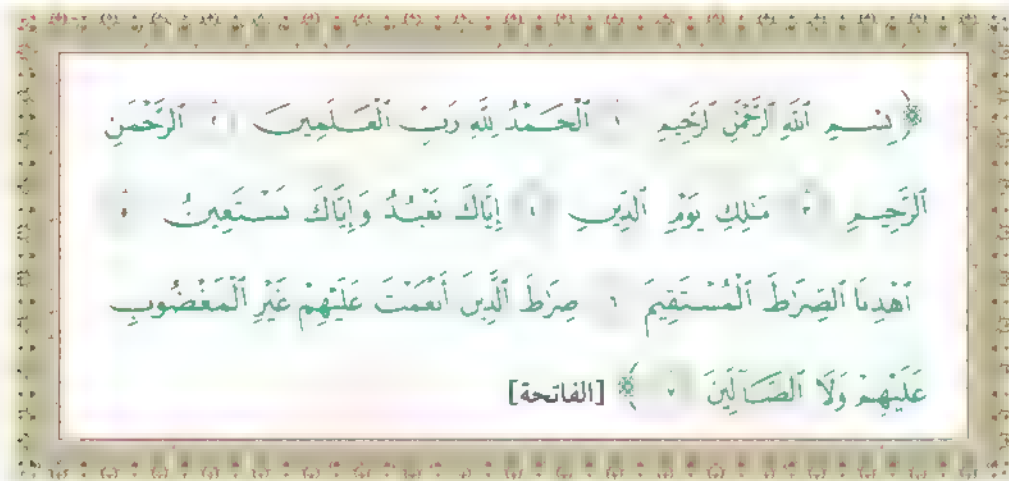 ﴿ بِسْمِ ٱللَّهِ ٱلرَّحْمَٰنِ ٱلرَّحِيمِ ١ ٱلْحَمْدُ لِلَّهِ رَبِّ ٱلْعَٰلَمِينَ ٢ ٱلرَّحْمَٰنِ
ٱلرَّحِيمِ ٣ مَٰلِكِ يَوْمِ ٱلدِّينِ ٤ إِيَّاكَ نَعْبُدُ وَإِيَّاكَ نَسْتَعِينُ ٥
ٱهْدِنَا ٱلصِّرَٰطَ ٱلْمُسْتَقِيمَ ٦ صِرَٰطَ ٱلَّذِينَ أَنْعَمْتَ عَلَيْهِمْ غَيْرِ ٱلْمَغْضُوبِ
عَلَيْهِمْ وَلَا ٱلضَّآلِّينَ ٧ ﴾ [الفاتحة]